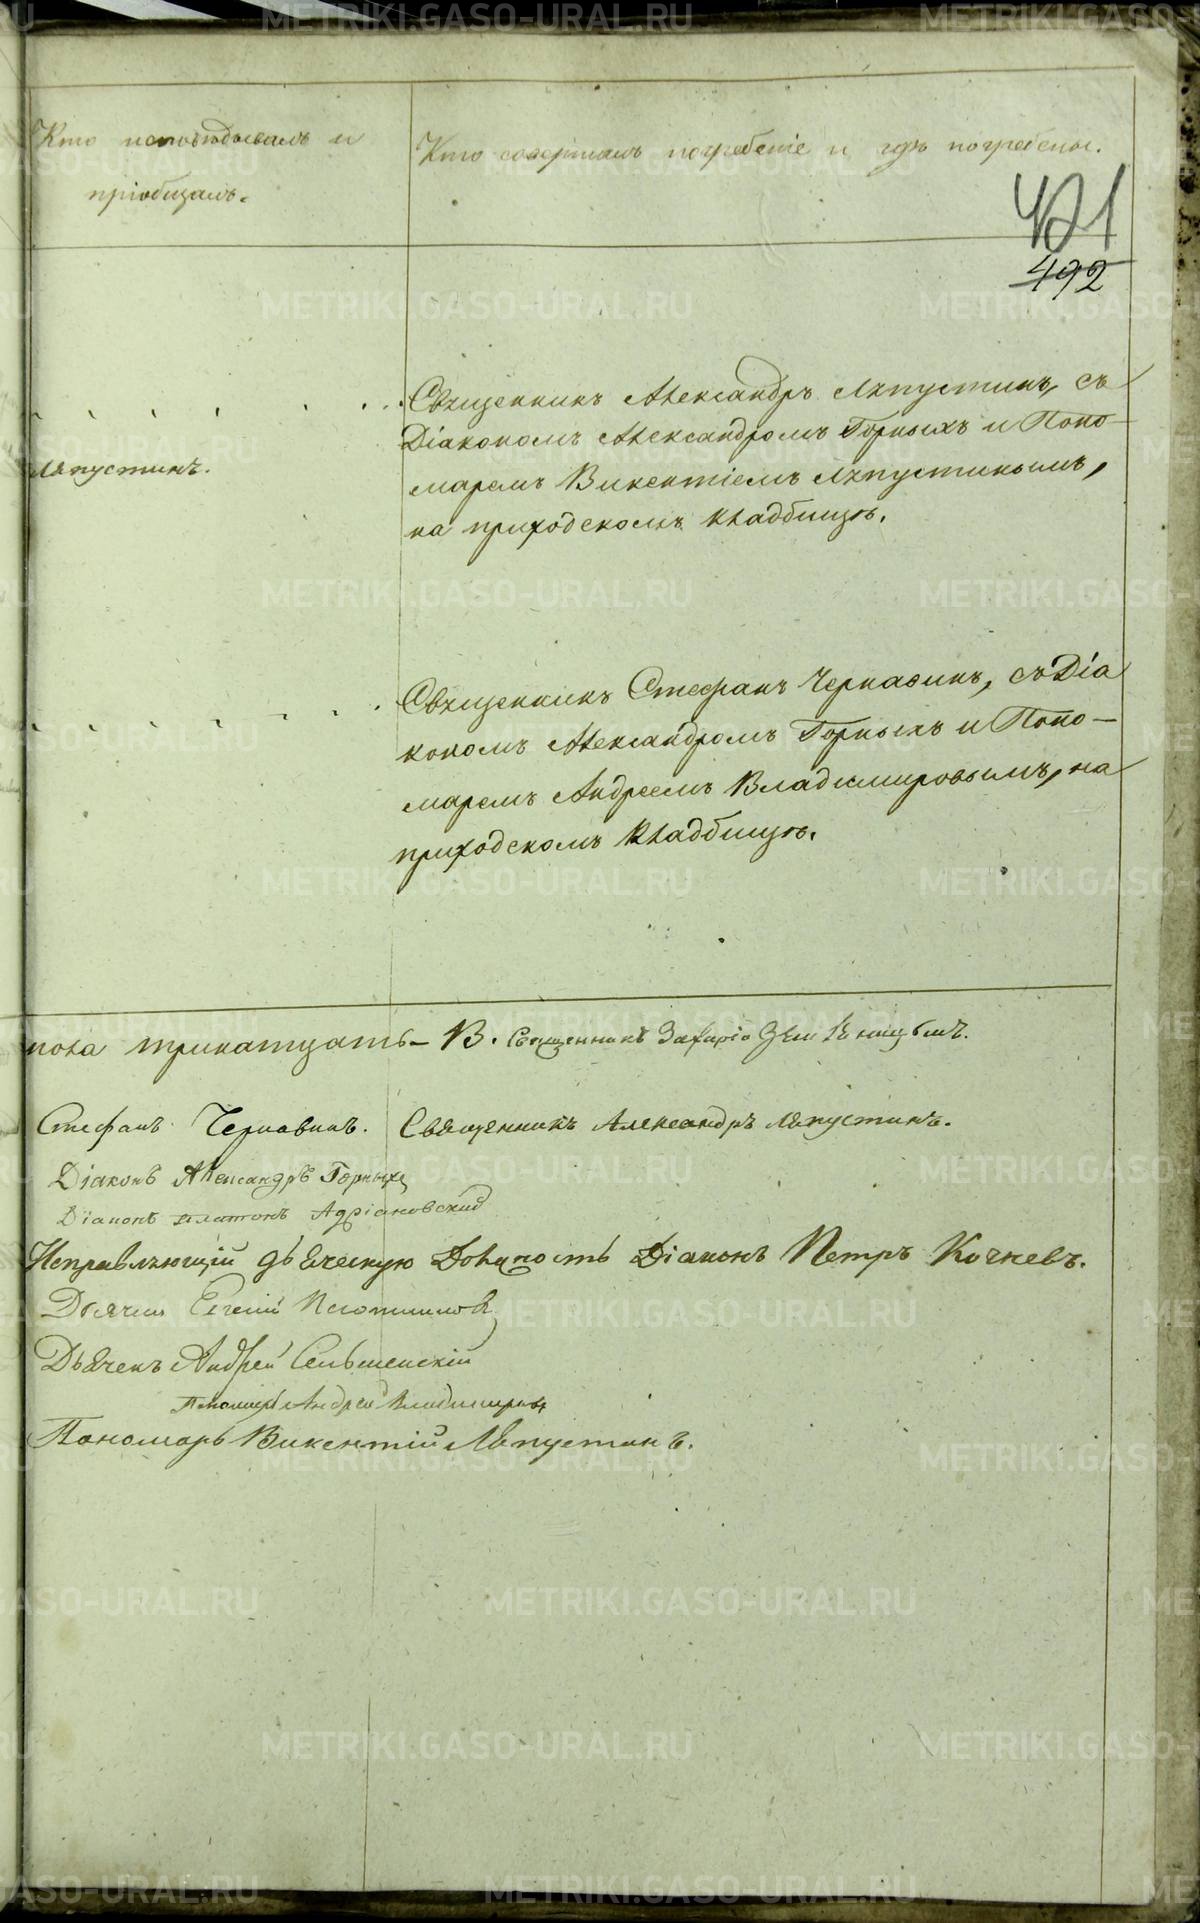 Кто исповѣдывалъ и
пріобщалъ.
Кто совершалъ погребеніе и гдѣ погребены.
421
492
Священникъ Александръ Ляпустинъ, съ
Діакономъ Александромъ Горныхъ и Поно-
Ляпустинъ.
маремъ Викентіемъ Ляпустинымъ,
на приходскомъ кладбищѣ.
Священникъ Стефанъ Чернавинъ, съ Діа
кономъ Александромъ Горныхъ и Поно-
маремъ Андреемъ Владимировымъ, на
приходскомъ кладбищѣ.
пола тринатцать – В. Священникъ Захарій
Стефанъ Чернавинъ. Священникъ Александръ Ляпустинъ.
Діаконъ Александръ Горныхъ
Діаконъ Платонъ Адріановскій
Исправляющій дьяческую Должность Діаконъ Петръ Кочневъ.
Дьячекъ Евгеній
Дьячекъ Андрей
Пономарь Андрей Владимировъ
Пономарь Викентій Ляпустинъ.
METRIKI.GASO-URAL.RU